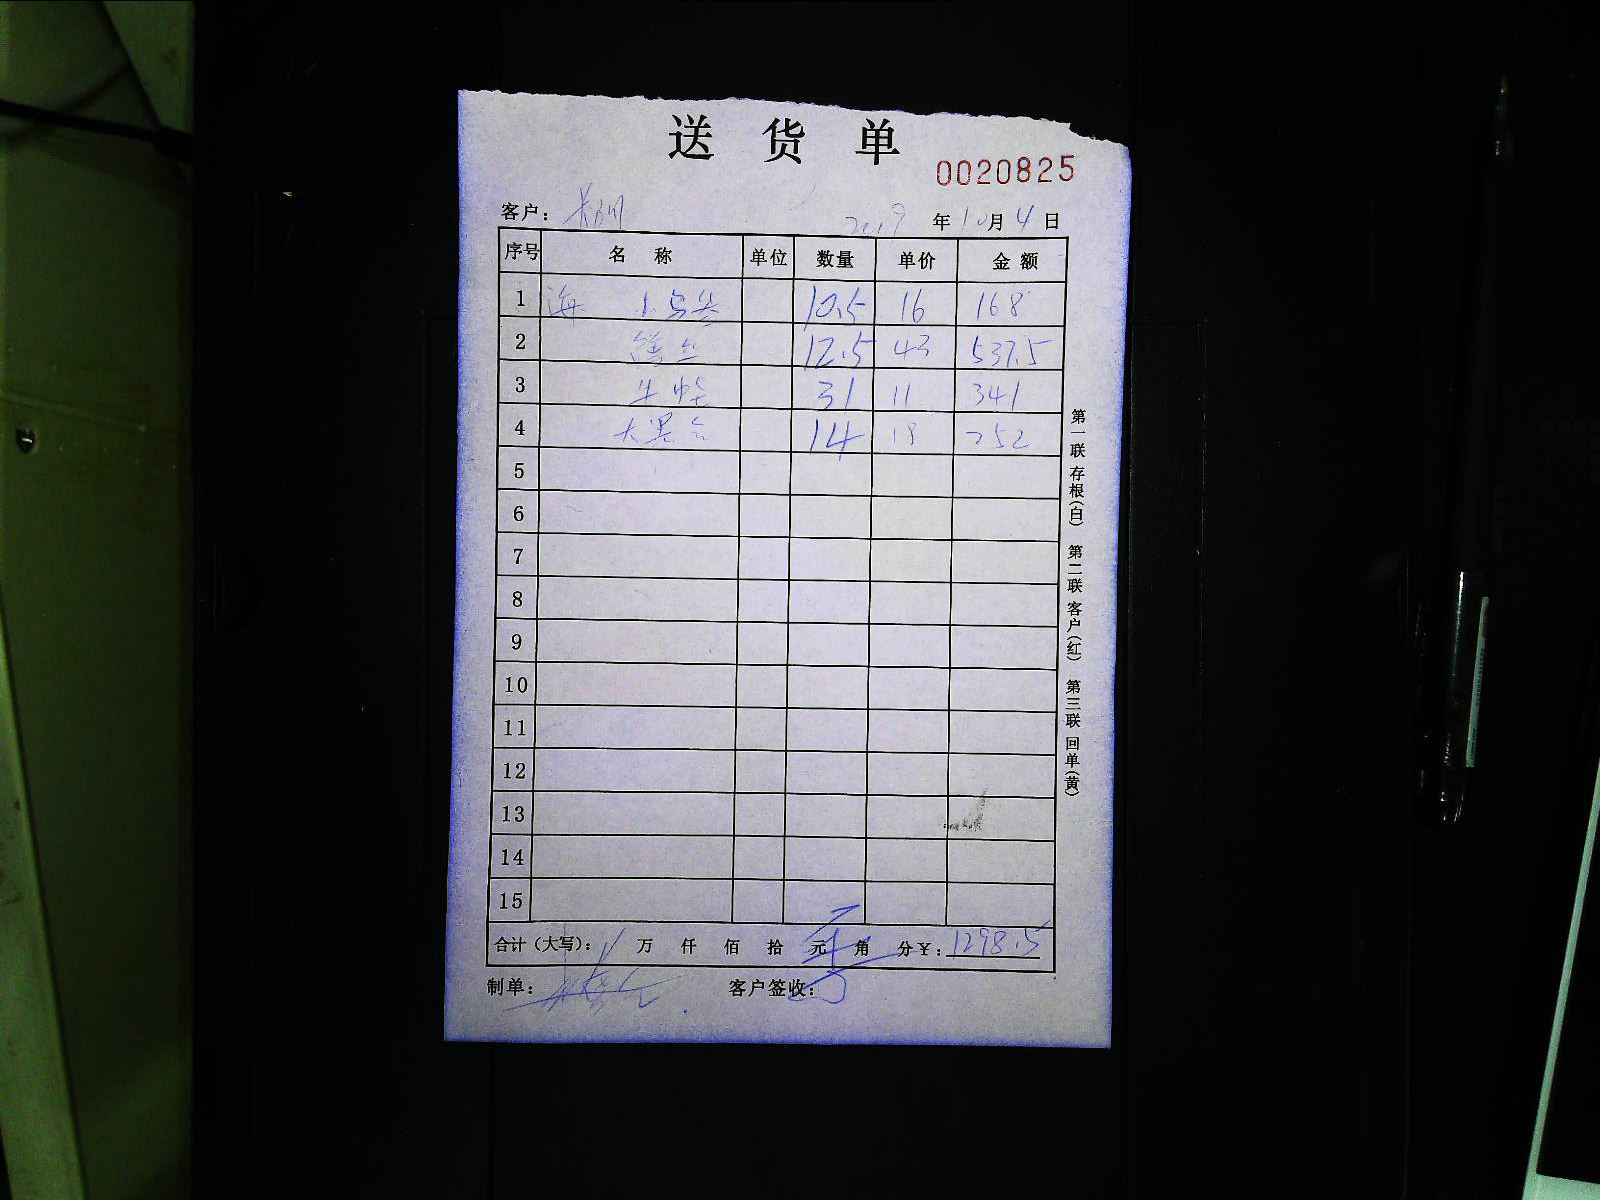 送货单
0020825
客户:
2019 年 10 月 4 日
序号 名称 单位 数量 单价 金额
1 海 10.5 16 168
2 12.5 43 537.5
3 31 11 341
4 大 14 18 252
5
6
7
8
9
10
11
12
13
14
15
合计(大写): 万 仟 佰 拾 元 角 分 ¥: 1298.5
制单: 客户签收:
第一联 存根(白) 第二联 客户(红) 第三联 回单(黄)